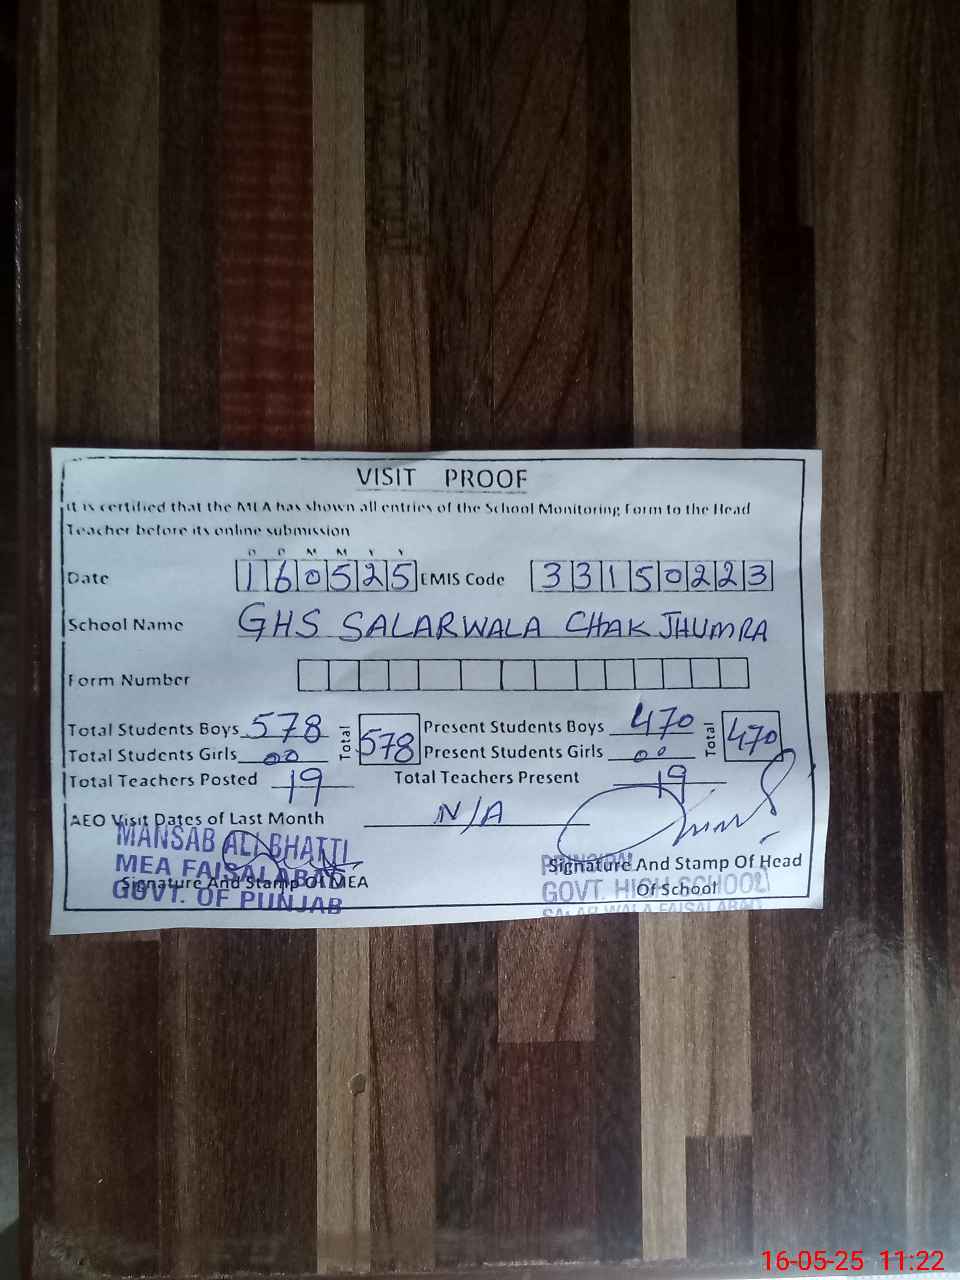 VISIT PROOF
It is certified that the MEA has shown all entries of the School Monitoring Form to the Head
Teacher before its online submission
D D M M Y Y
Date 160525 EMIS Code 33150223
School Name GHS SALARWALA CHAK JHUMRA
Form Number
Total Students Boys 578 Total 578 Present Students Boys 470 Total 470
Total Students Girls 00 Present Students Girls 00
Total Teachers Posted 19 Total Teachers Present 19
AEO Visit Dates of Last Month N/A
MANSAB ALI BHATTI
MEA FAISALABAD
Signature And Stamp Of MEA
GOVT. OF PUNJAB
PRINCIPAL
Signature And Stamp Of Head
Of School
GOVT. HIGH SCHOOL
SALARWALA FAISALABAD
16-05-25 11:22